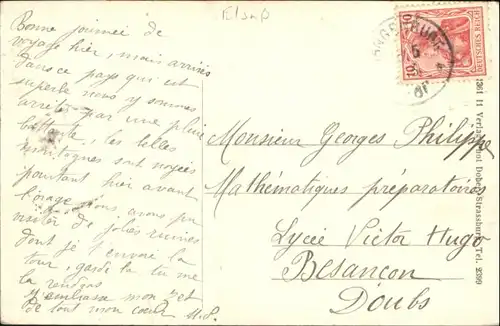 Elsaß
Bonne journée de
voyage hier, mais arrivés
dans ce pays qui est
superbe nous y sommes
arrêtés par une pluie
battante, les belles
montagnes sont noyées
pourtant hier avant
l'orage nous avons pu
visiter de jolies ruines
dont je t'envoie la
tour, garde la tu me
la rendras
J'embrasse mon
de tout mon cœur M.P.
10
10
DEUTSCHES REICH
Monsieur Georges Philippe
Mathématiques préparatoires
Lycée Victor Hugo
Besançon
Doubs
Verlag Strassburg Tel. 2399